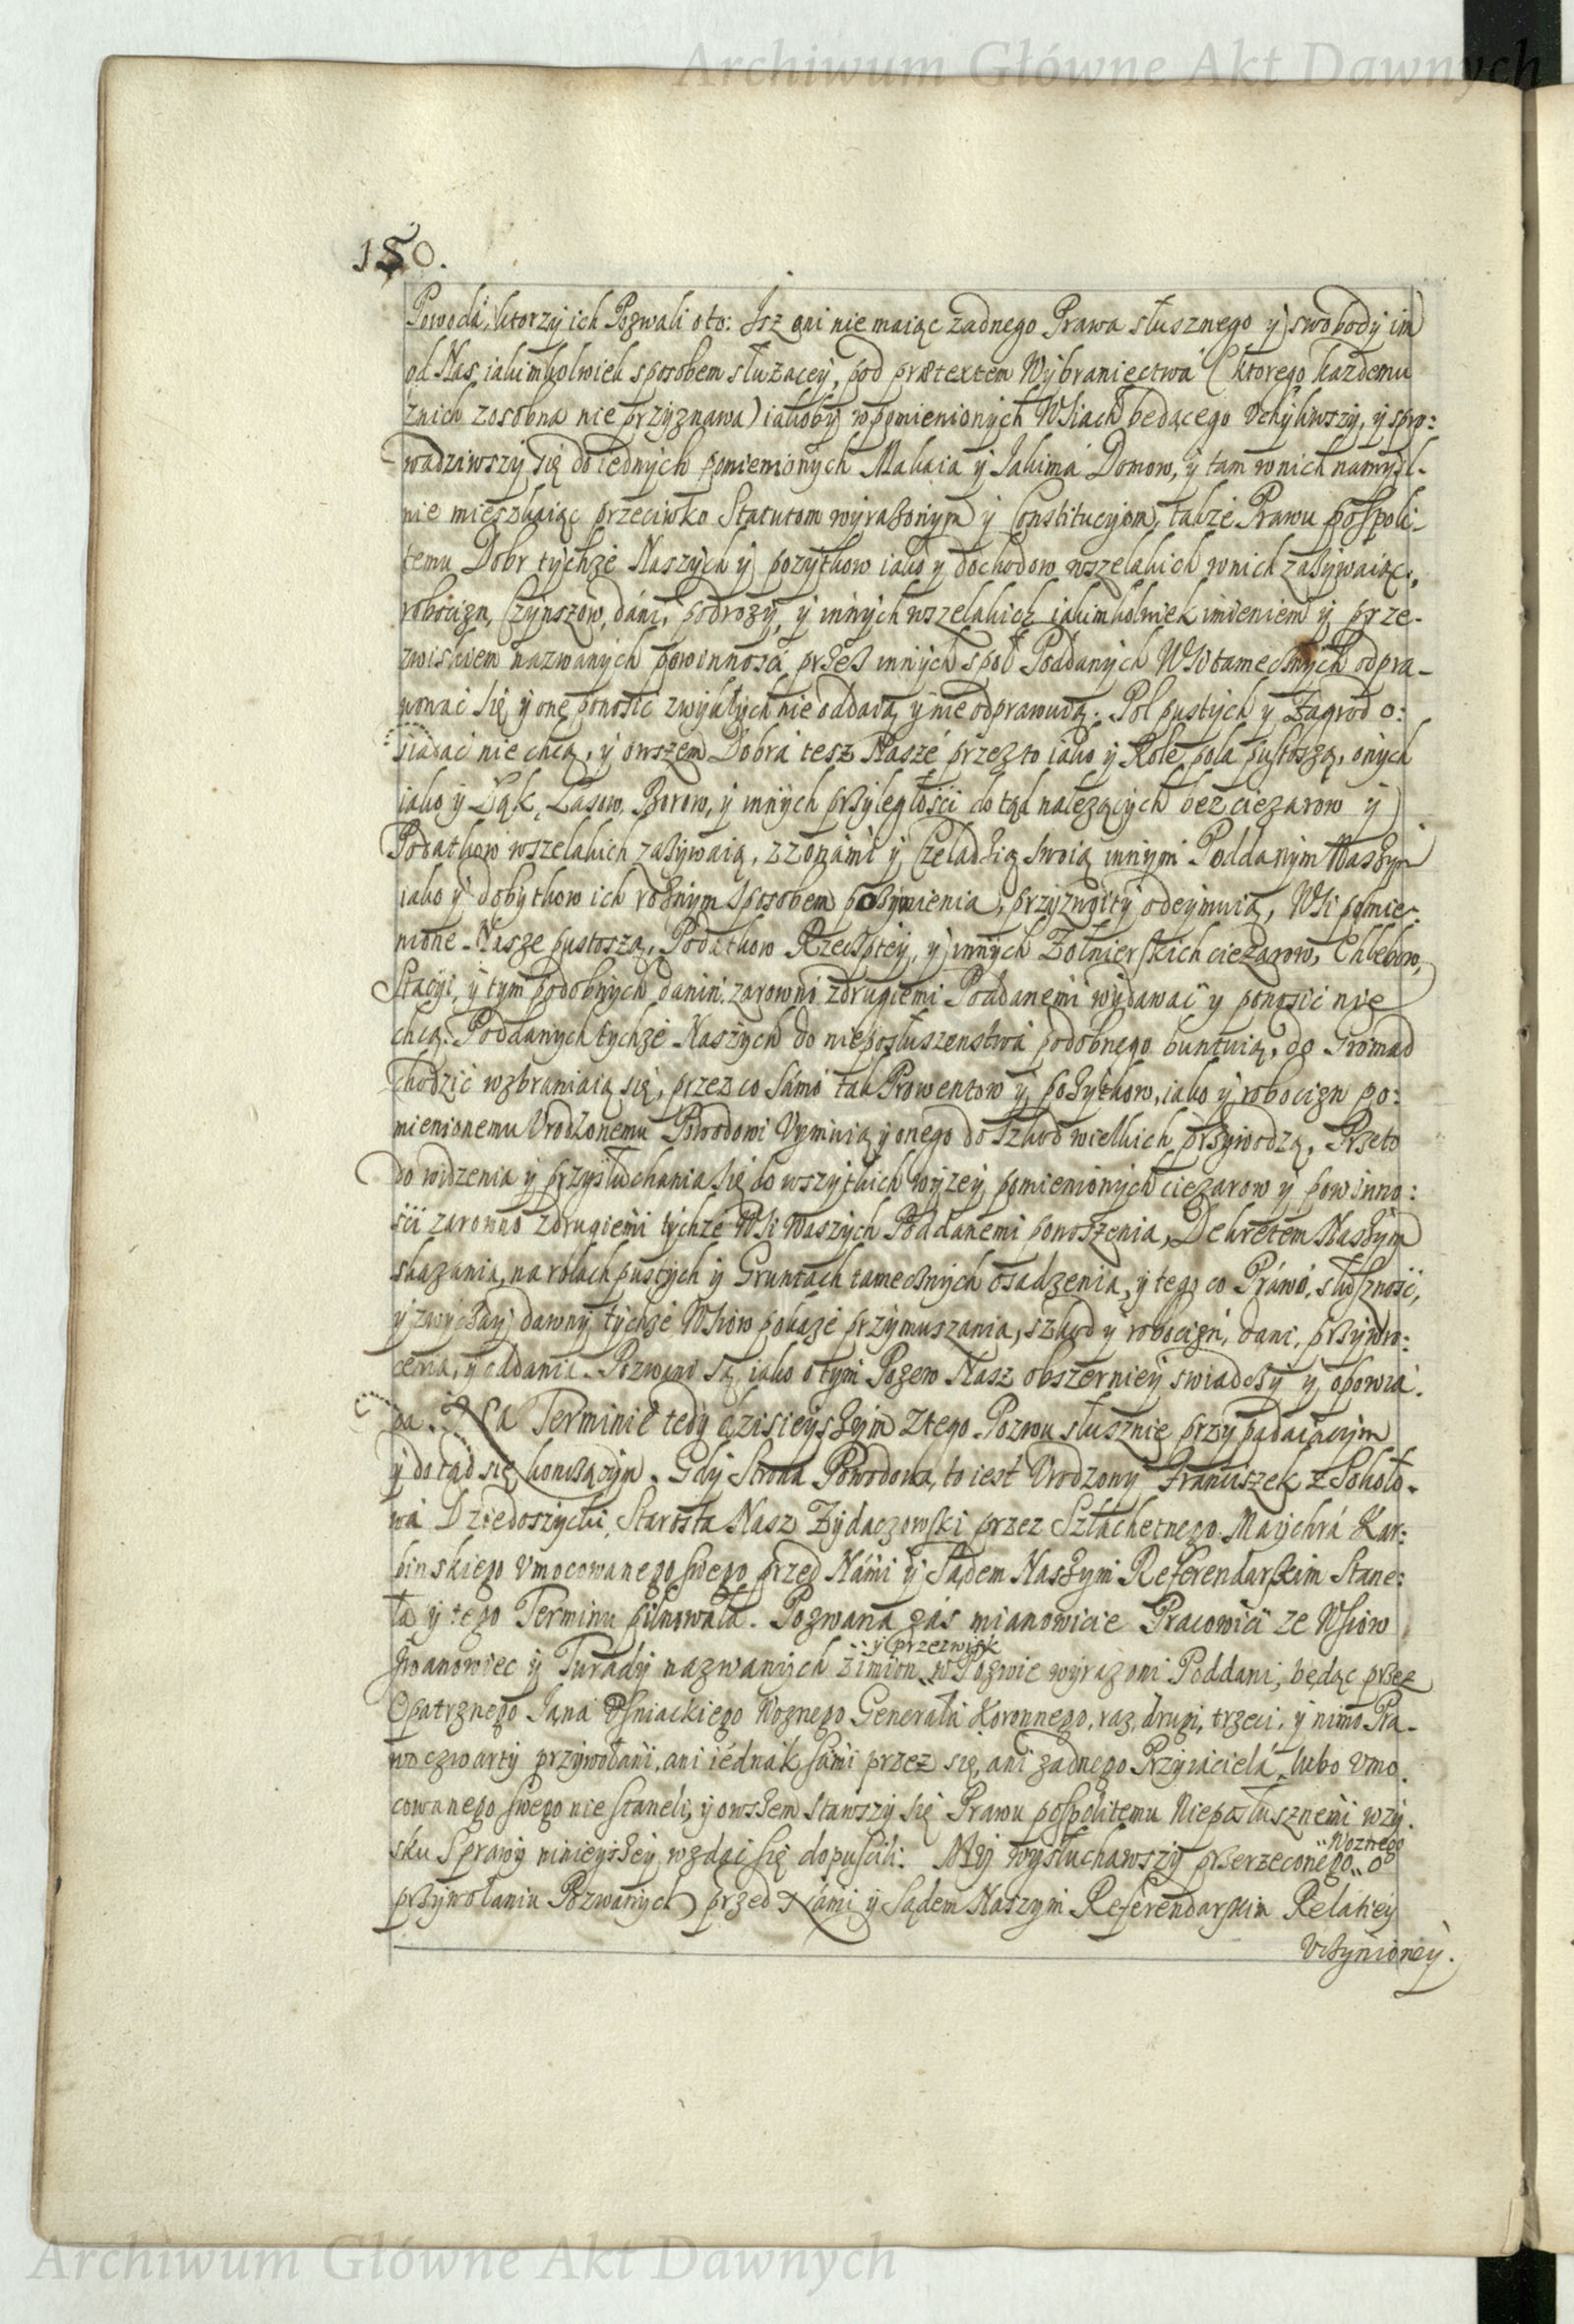 Archiwum Główne Akt Dawnych
150.
Powoda, ktorzy ich Pozwali oto: Isz oni nie maiąc żadnego Prawa słusznego y swobody im
od Nas iakimkolwiek sposobem służącey, pod prætextem Wybraniectwa (ktorego każdemu
znich zosobna nie przyznawa) iakoby wpomienionych Wsiach będącego Vchyliwszy, y spro:
wadziwszy się do iednych pomienionych Makaia y Jakima Domow, y tam wnich namysl-
nie mieszkaiąc przeciwko Statutom wyrażonym y Constitucyom, także Prawu pospoli-
temu Dobr tychże Naszych y pożytkow iako y dochodow wszelakich wnich zażywaiąc,
robocizn, Czynszow, dani, podroży, y innych wszelakich iakimkolwiek imieniem y prze-
zwiskiem nazwanych powinnosci przes innych społ Poddanych Wsi tamecznych odpra-
wować się y one ponosić zwykłych nie oddaią y nie odprawuią. Pol pustych y Zagrod o:
siadać nie chcą, y owszem Dobra tesz Nasze przezto iako y Role pola pustoszą, onych
iako y Łąk, Lasow, Borow, y innych przyległości do tąd należących bez ciężarow y
Podatkow wszelakich zażywaią, z żonami y Czeladzią swoią innymi Poddanym Naszym
iako y dobytkow ich rożnym sposobem pożywienia, przyzwoity odeymuią, Wsi pomie-
nione Nasze pustoszą, Podatkow Rzeczptey, y innych Żołnierskich ciężarow, Chlebow,
Stacyi, y tym podobnych danin zarowni zdrugiemi Poddanemi wydawać y ponosić nie
chcą. Poddanych tychże Naszych do nieposłuszenstwa podobnego buntuią, do Gromad
chodzić wzbraniaią się, przez co samo tak Prowentow y pożytkow, iako y robocizn po:
mienionemu Vrodzonemu Powodowi Vymuią y onego do szkod wielkich przywodzą, Przeto
do widzenia y przysłuchania się do wszytkich wyżey pomienionych ciężarow y powinno:
sci zarowno zdrugiemi tychże Wsi Naszych Poddanemi ponoszenia, Dekretem Naszym
skazania, na rolach pustych y Gruntach tamecznych osadzenia, y tego co Prawo, słuszność,
y zwyczay dawny tychże Wsiow pokaże przymuszania, szkod y robocizn, dani, przywro:
cenia, y oddania. Pozwani są iako o tym Pozew Nasz obszerniey swiadczy y opowia-
da. Na Terminie tedy dzisieyszym Ztego Pozwu słusznie przypadaiącym
y dotąd się kończącym. Gdy Strona Powodowa, to iest Vrodzony Franciszek z Sokoło-
wa Dziedoszycki, Starosta Nasz Żydaczowski przez Szlachetnego Maychra Kar:
pinskiego Vmocowanego swego przed Nami y Sądem Naszym Referendarskim Stane:
ła y tego Terminu pilnowała. Pozwana zas mianowicie Pracowici ze Wsiow
Jwanowiec y Turady nazwanych Zimion y przezwisk w Pozwie wyrazoni Poddani, będąc przez
Opatrznego Jana Osniackiego Woznego Generała Koronnego, raz, drugi, trzeci, y nimo Pra-
wo czwarty przywołani, ani iednak sami przez się, ani żadnego Przyiaciela, lubo Vmo-
cowanego swego nie staneli, y owszem stawszy się Prawu pospolitemu Nieposłusznemi wzy-
sku Sprawy ninieyszey wzdać się dopuścili. My wysłuchawszy przerzeconego Woznego o
przywołaniu Pozwanych przed Nami y Sądem Naszym Referendarskim Relatiey
Vczynioney.
Archiwum Główne Akt Dawnych